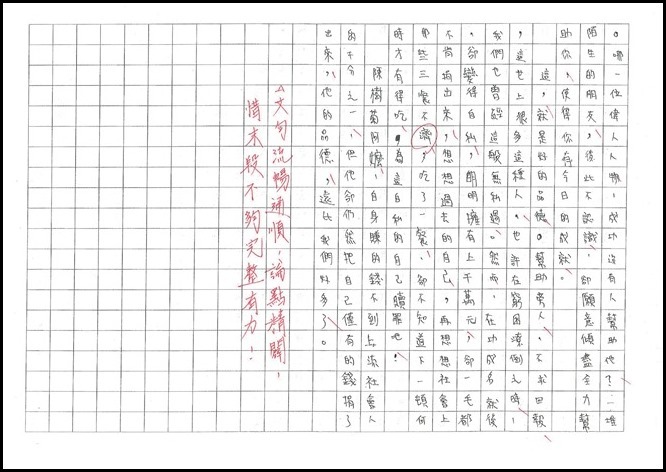 。哪一位偉人，成功沒有人幫助他？一堆
陌生的朋友，彼此不認識，卻願意傾盡全力幫
助你，使得你存今日的成就。
這，就是好的品德。幫助旁人，不求回報
，這世上很多這種人。也許在窮困潦倒之時，
我們也曾經一般無私過。然而，在功成名就後
，卻變得自私，明明擁有上千萬元，卻一毛都
不肯掏出來，想想過去的自己，再想想社會上
那些三餐不濟，吃了一餐，卻不知道下一頓何
時才有得吃，為這自私的自己贖罪吧！
陳樹菊阿嬤，自身賺的錢不到上流社會人
的千分之一，但他卻仍然把自己僅有的錢捐了
出來，他的品德，遠比我們好多了。
△文句流暢通順，論點精闢，
惜末段不夠完整有力！